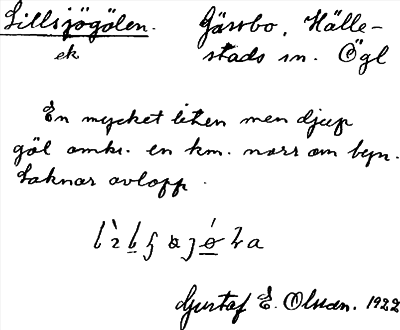 Lillsjögölen. Gässbo, Hälle-
ek stads sn. Ögl
En mycket liten men djup
göl omkr. en km. norr om byn.
Saknar avlopp.
Gustaf E. Olsson. 1922